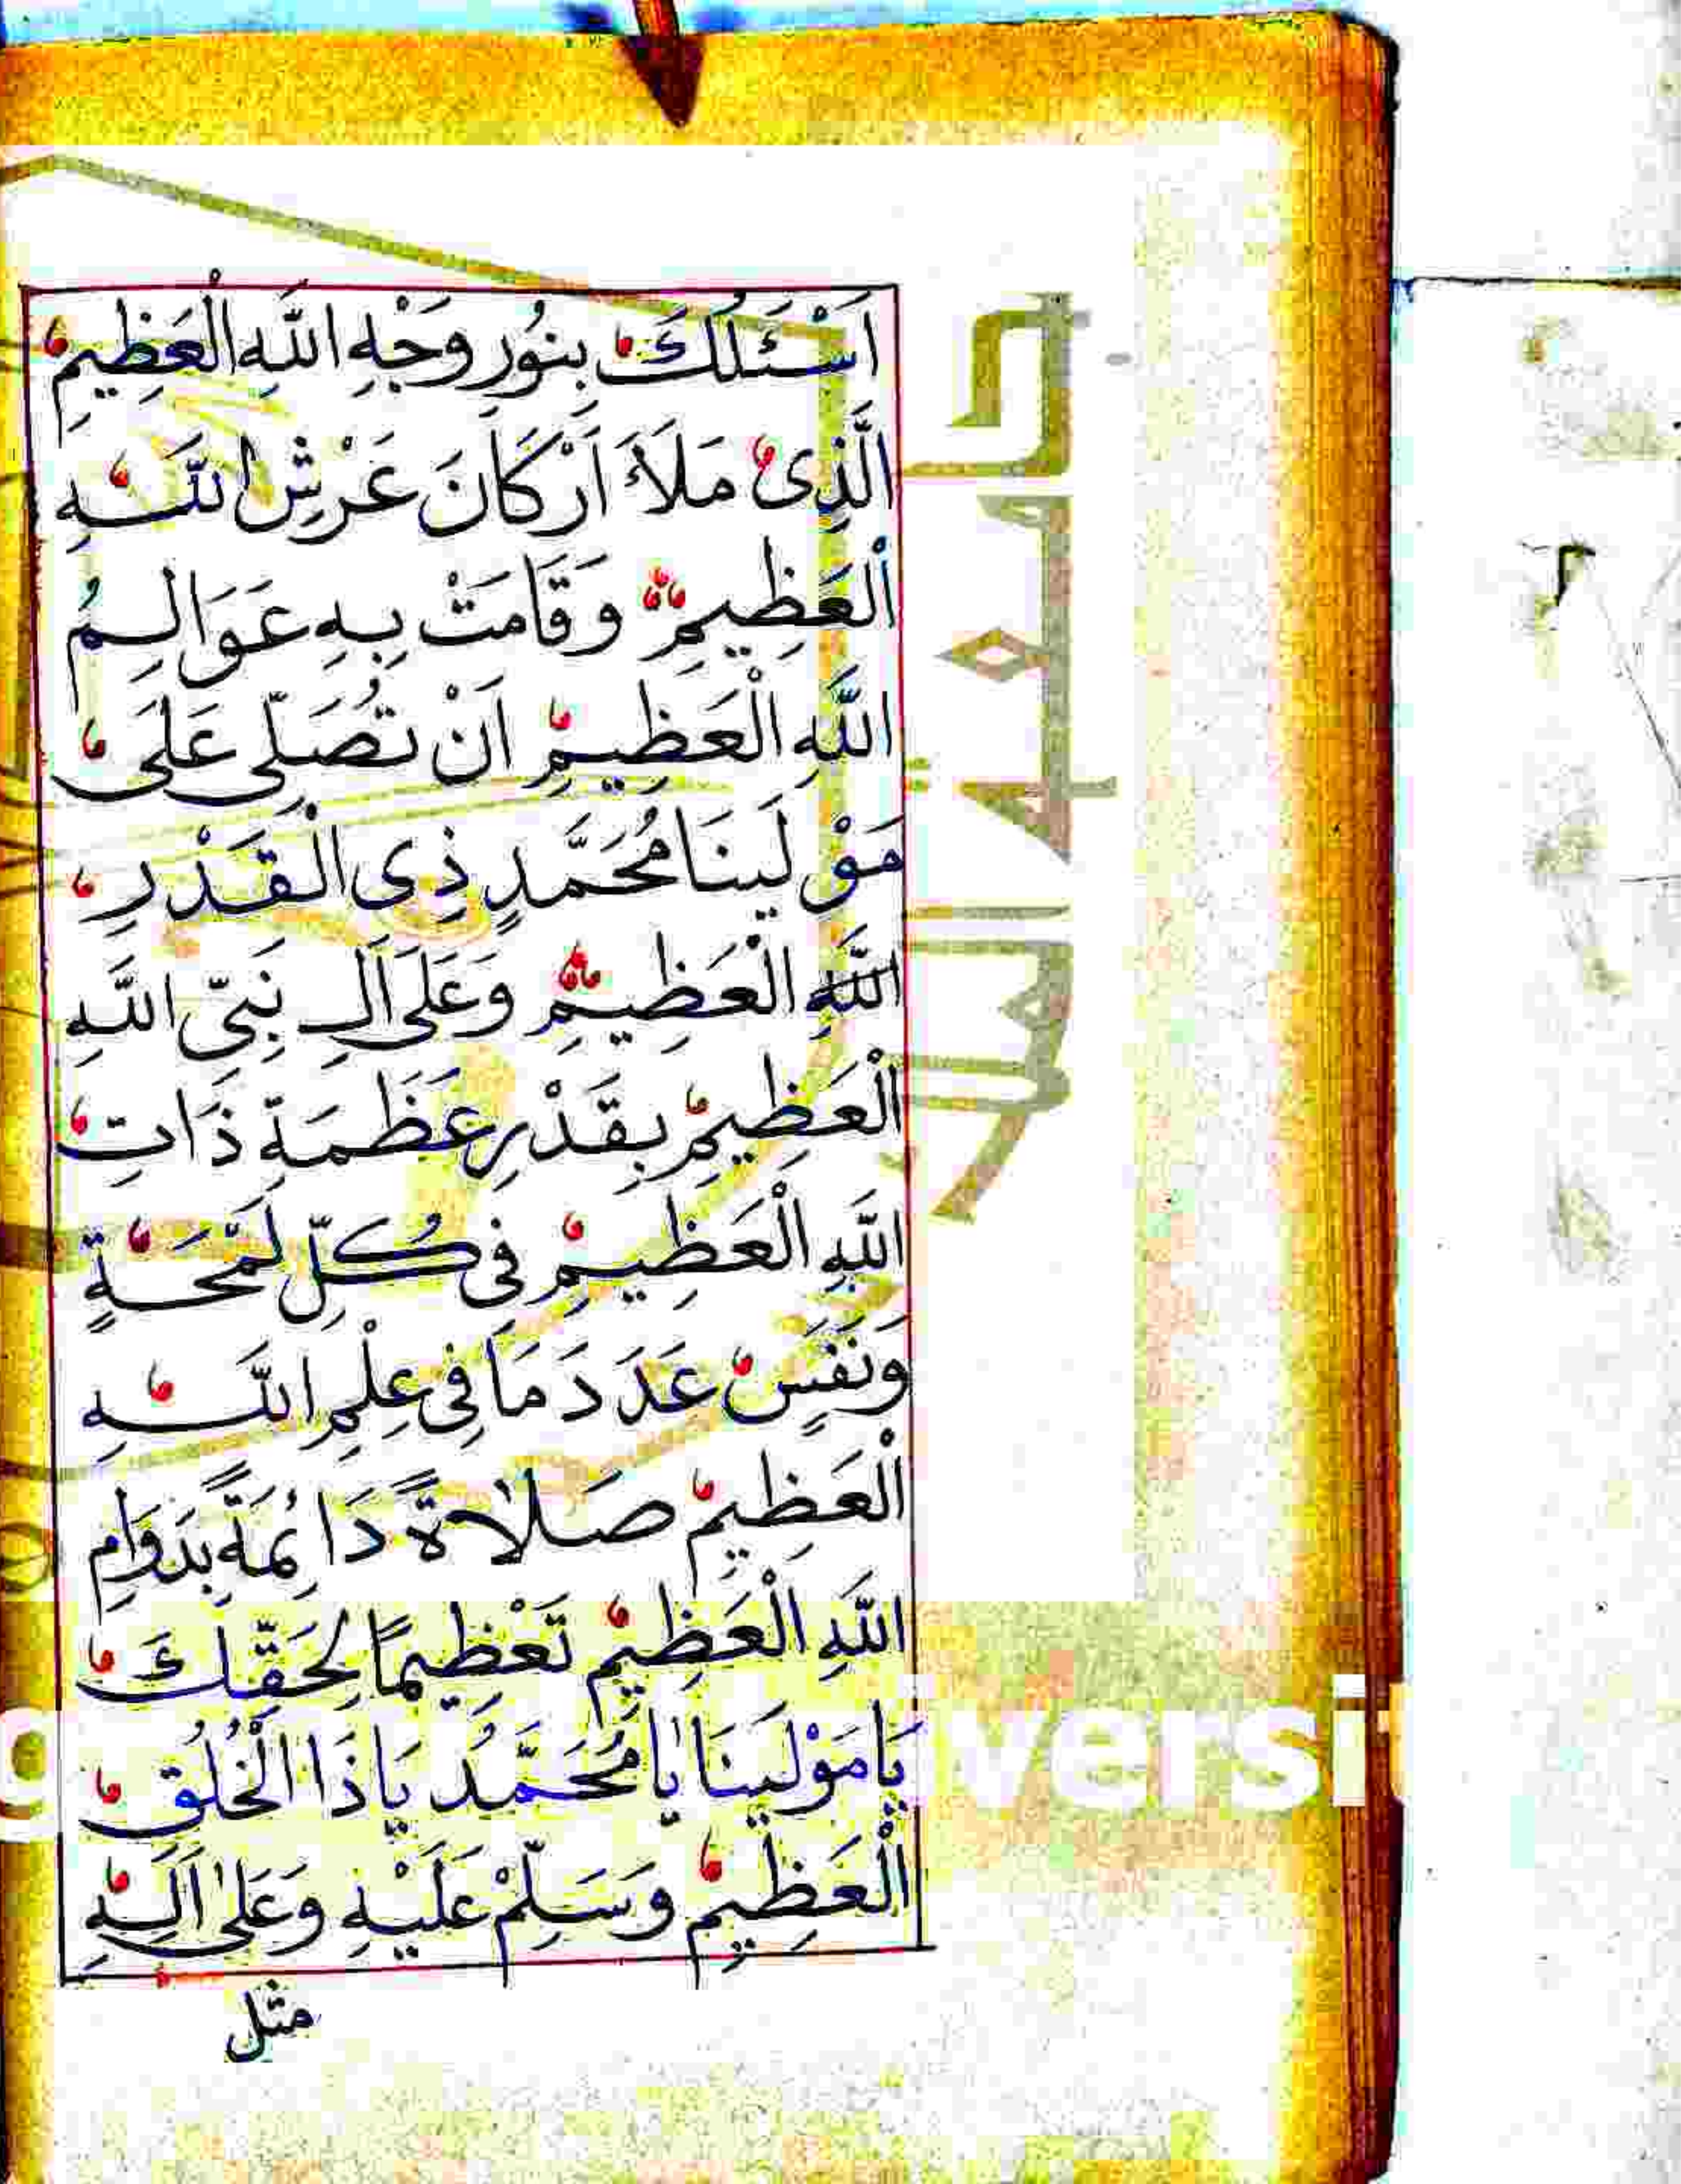 اَسْئَلُكَ بِنُورِ وَجْهِ اللّٰهِ الْعَظِيمِ
الَّذِى مَلَأَ اَرْكَانَ عَرْشِ اللّٰهِ
الْعَظِيمِ وَقَامَتْ بِهِ عَوَالِمُ
اللّٰهِ الْعَظِيمِ اَنْ تُصَلِّىَ عَلَى
مَوْلَينَا مُحَمَّدٍ ذِى الْقَدْرِ
اللّٰهِ الْعَظِيمِ وَعَلَى اٰلِ نَبِىِّ اللّٰهِ
الْعَظِيمِ بِقَدْرِ عَظَمَةِ ذَاتِ
اللّٰهِ الْعَظِيمِ فِى كُلِّ لَمْحَةٍ
وَنَفَسٍ عَدَدَ مَا فِى عِلْمِ اللّٰهِ
الْعَظِيمِ صَلَاةً دَائِمَةً بِدَوَامِ
اللّٰهِ الْعَظِيمِ تَعْظِيمًا لِحَقِّكَ
يَا مَوْلَينَا يَا مُحَمَّدُ يَا ذَا الْخُلُقِ
الْعَظِيمِ وَسَلِّمْ عَلَيْهِ وَعَلٰى اٰلِهِ
مثل
جامعة الملك
versit